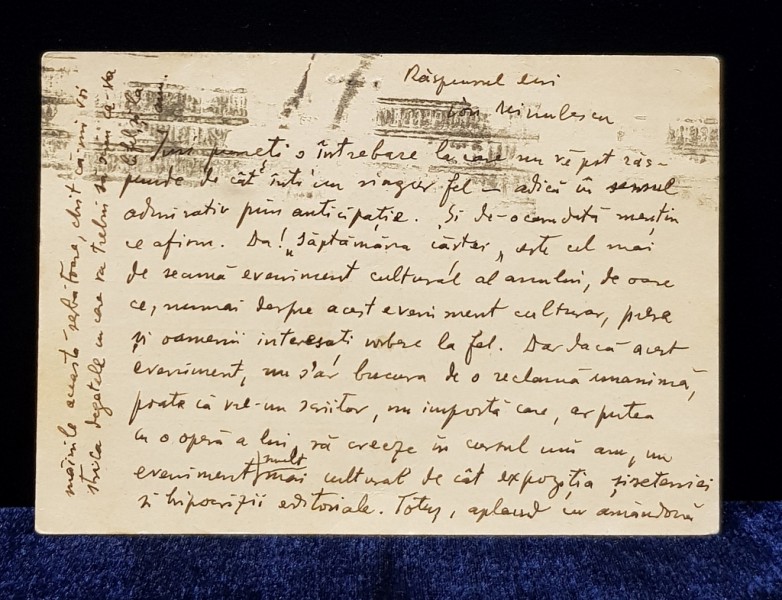 Răspunsul lui
Ion Minulescu
Îmi puneți o întrebare la care nu vă pot răs-
punde de cât într'un singur fel — adică în sensul
admirativ prin anticipație. Și de-o camdată mențin
ce afirm. Da! „Săptămâna cărței„ este cel mai
de seamă eveniment cultural al anului, de oare
ce, numai despre acest eveniment cultural, presa
și oamenii interesați vorbesc la fel. Dar dacă acest
eveniment, nu s'ar bucura de o reclamă unanimă,
poate că vre-un scriitor, nu importă care, ar putea
cu o operă a lui, să creeze în cursul unui an, un
eveniment mult mai cultural de cât expoziția șireteniei
și hipocriziei editoriale. Totuș, aplaud cu amândouă
mâinile această sărbătoare, chit că-mi voi
strica degetele cu care va trebui să scriu ca-va